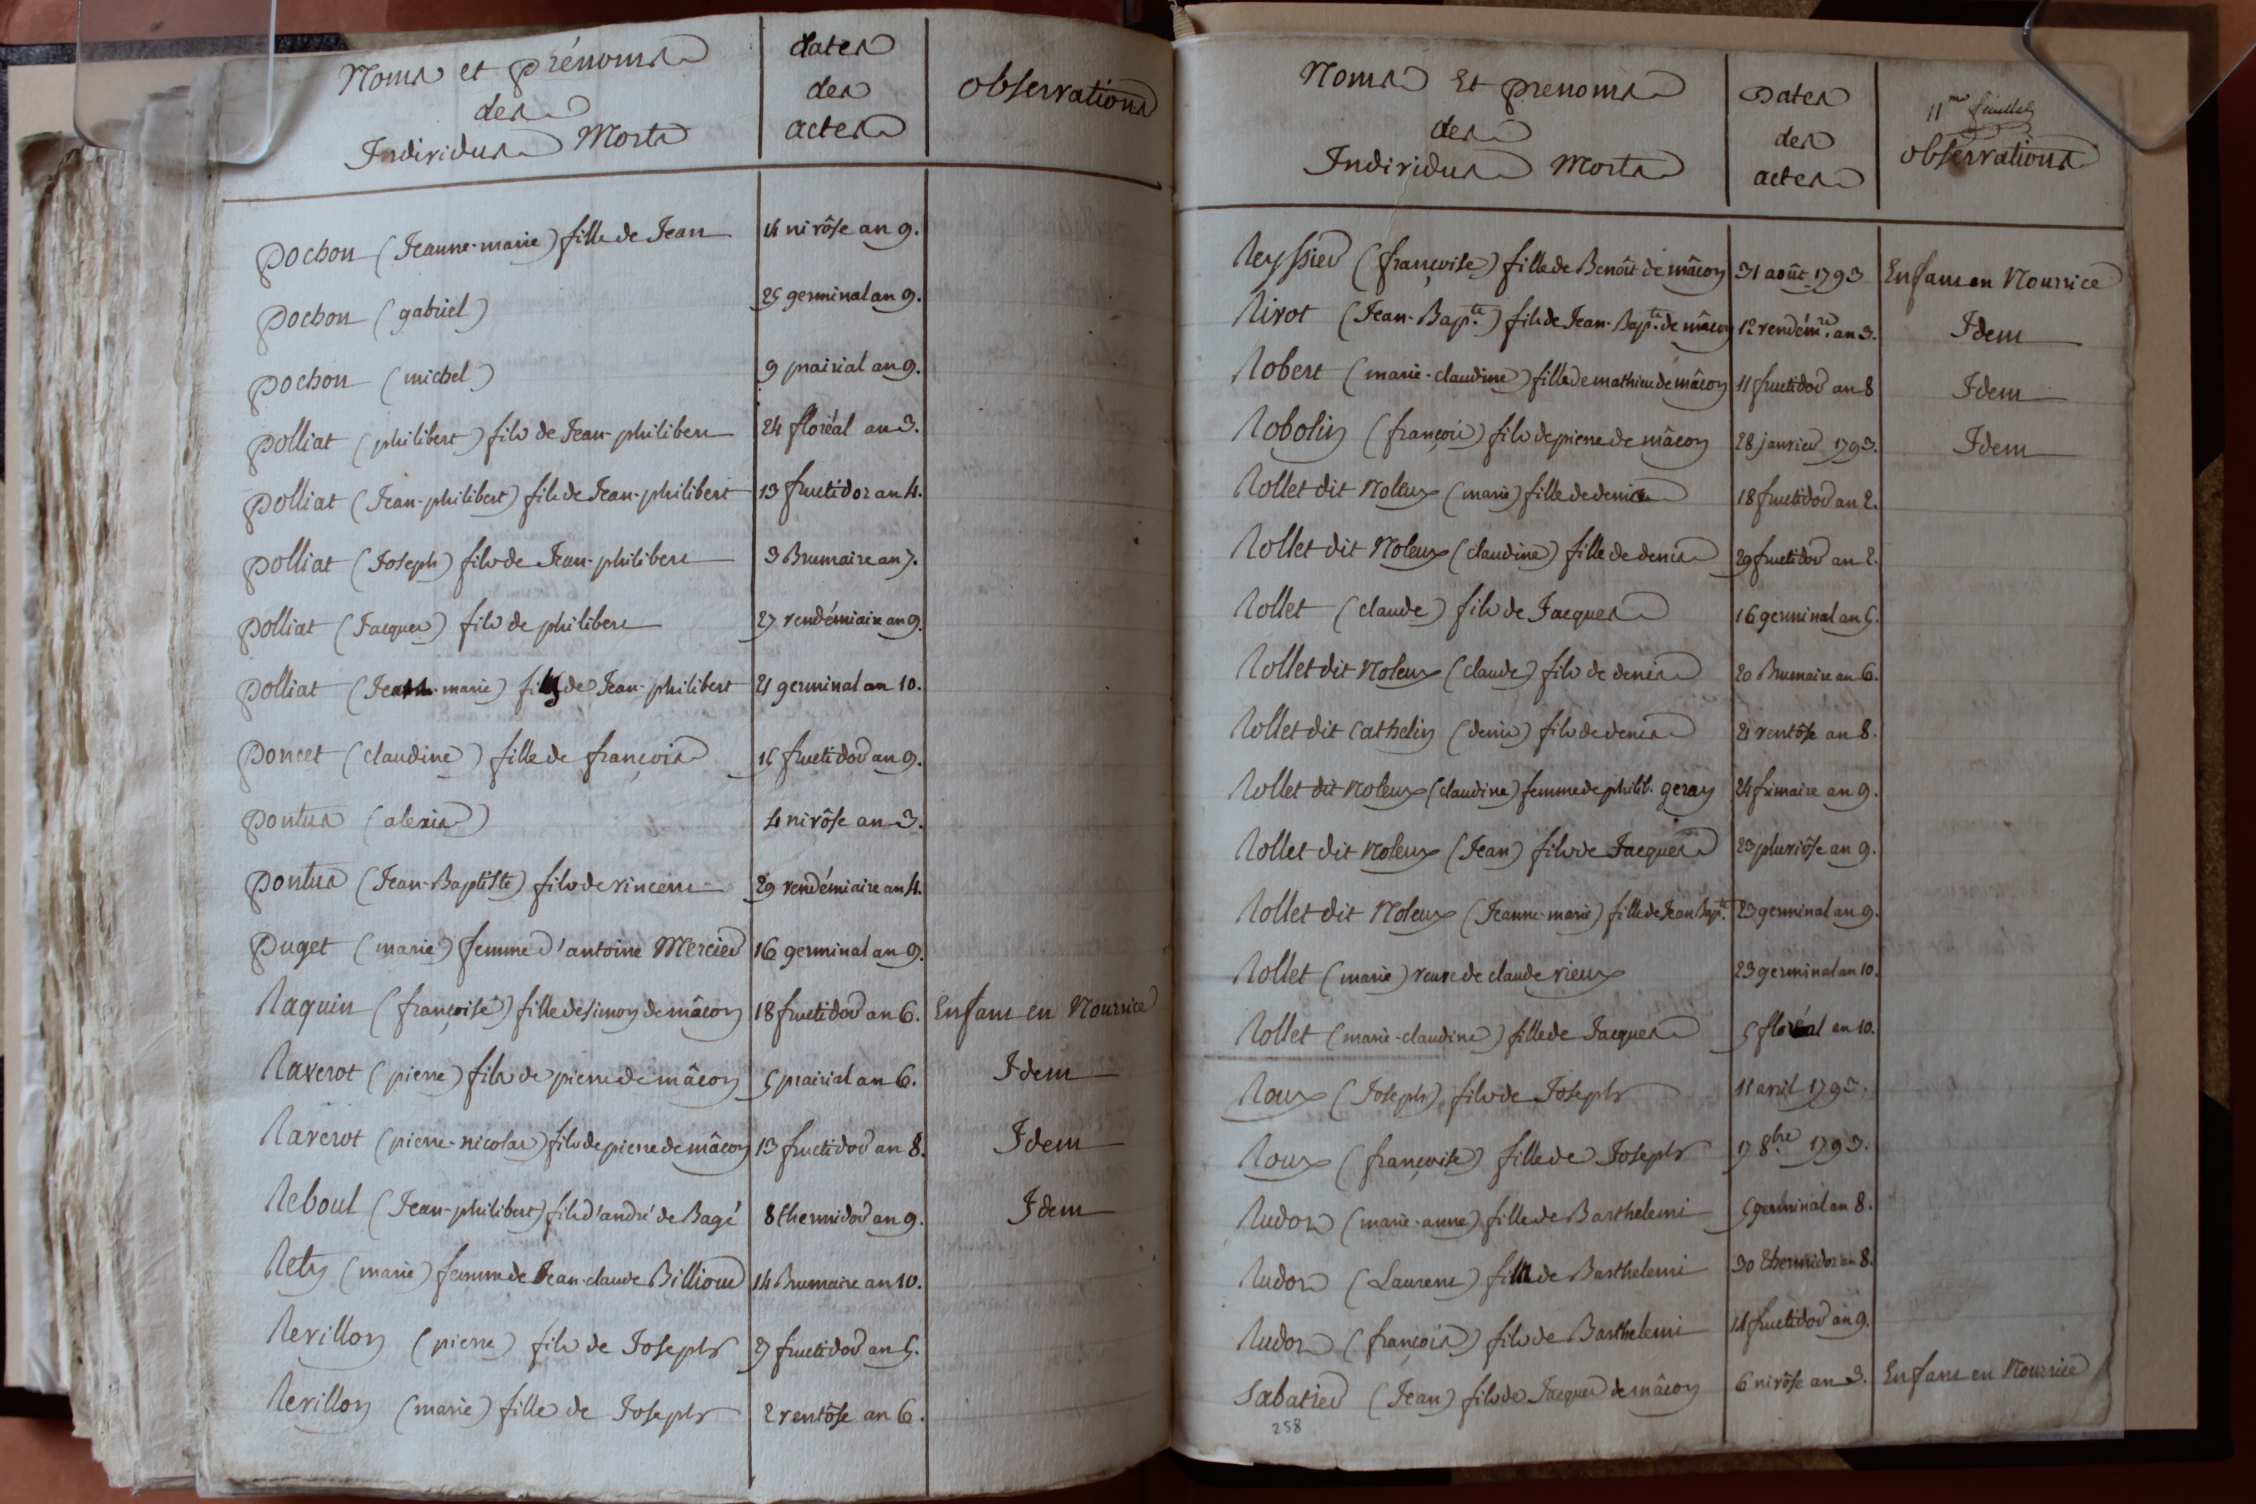 Noms et prénoms
des
Individus Morts
dates
des
actes
observations
Pochon (Jeanne-marie) fille de Jean 14 nivôse an 9.
Pochon (gabriel) 25 germinal an 9.
Pochon (michel) 9 prairial an 9.
Polliat (philibert) fils de Jean-philibert 24 floréal an 3.
Polliat (Jean-philibert) fils de Jean-philibert 13 fructidor an 4.
Polliat (Joseph) fils de Jean-philibert 3 Brumaire an 7.
Polliat (Jacques) fils de philibert 27 vendémiaire an 9.
Polliat (-marie) de Jean-philibert 21 germinal an 10.
Poncet (claudine) fille de françois 15 fructidor an 9.
Pontus (alexis) 4 nivôse an 3.
Pontus (Jean-Baptiste) fils de vincent 29 vendémiaire an 4.
Puget (marie) femme d'antoine Mercier 16 germinal an 9.
Raquin (françoise) fille de simon de mâcon 18 fructidor an 6. Enfant en Nourrice
Raverot (pierre) fils de pierre de mâcon 5 prairial an 6. Idem
Raverot (pierre-nicolas) fils de pierre de mâcon 13 fructidor an 8. Idem
Reboul (Jean-philibert) fils d'andré de Bagé 8 thermidor an 9. Idem
Rety (marie) femme de Jean-claude Billioud 14 Brumaire an 10.
Revillon (pierre) fils de Joseph 27 fructidor an 5.
Revillon (marie) fille de Joseph 2 ventôse an 6.
Noms Et prenoms
des
Individus Morts
Dates
des
actes
11me feuillet
observations
Reyssier (françoise) fille de Benoît de mâcon 31 août 1793 Enfant en Nourrice
Rivot (Jean-Bapte.) fils de Jean-Bapte. de mâcon 12 vendémre. an 3. Idem
Robert (marie-claudine) fille de mathieu de mâcon 11 fructidor an 8 Idem
Robolin (françois) fils de pierre de mâcon 28 janvier 1793. Idem
Rollet dit Noleux (marie) fille de denis 18 fructidor an 2.
Rollet dit Noleux (claudine) fille de denis 29 fructidor an 2.
Rollet (claude) fils de Jacques 16 germinal an 5.
Rollet dit Noleux (claude) fils de denis 20 Brumaire an 6.
Rollet dit Cathelin (denis) fils de denis 21 ventôse an 8.
Rollet dit Noleux (claudine) femme de philib. geray 24 frimaire an 9.
Rollet dit Noleux (Jean) fils de Jacques 23 pluviôse an 9.
Rollet dit Noleux (Jeanne-marie) fille de Jean Bapte. 23 germinal an 9.
Rollet (marie) veuve de claude vieux 23 germinal an 10.
Rollet (marie-claudine) fille de Jacques 5 floréal an 10.
Roux (Joseph) fils de Joseph 11 avril 1793.
Roux (françoise) fille de Joseph 17 8bre. 1793.
Rudon (marie-anne) fille de Barthelemi 5 germinal an 8.
Rudon (Laurent) de Barthelemi 30 thermidor an 8.
Rudon (françois) fils de Barthelemi 14 fructidor an 9.
Sabatier (Jean) fils de Jacques de mâcon 6 nivôse an 3. Enfant en Nourrice
258